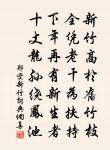 新竹高於舊竹枝
全凭老干為扶持
下年再有新生者
十丈龍孫繞鳳池
鄭燮新竹詞典網集